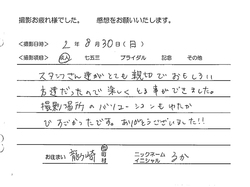 撮影お疲れ様でした。 感想をお願いいたします。
<撮影日時> 2年 8月 30日(日)
<撮影項目> 成人 七五三 ブライダル 記念 その他
スタッフさん達がとても親切でおもしろい
方達だったので楽しくとる事ができました。
撮影場所のバリエーションもゆたか
ですごかったです。ありがとうございました!!
お住まい 龍ヶ崎 市 町 村 ニックネーム イニシャル るか